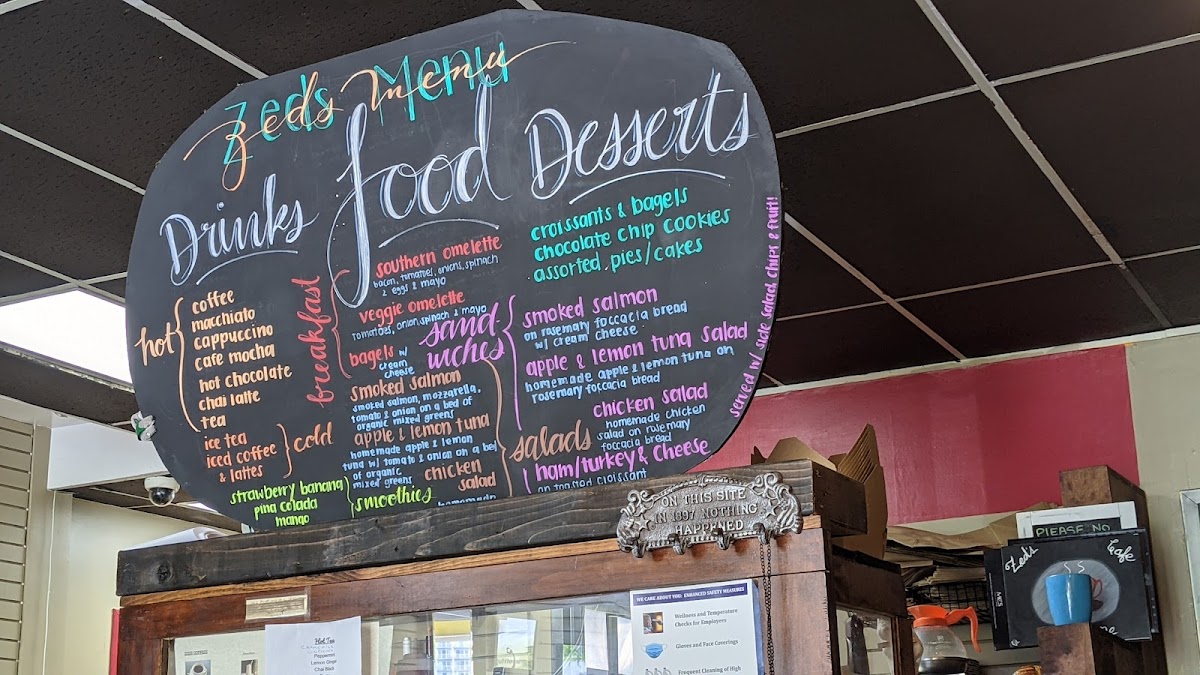 Zeds Menu
zeds menu
Drinks
food
Desserts
hot
coffee
macchiato
cappuccino
cafe mocha
hot chocolate
chai latte
tea
ice tea
iced coffee
& lattes
cold
strawberry banana
pina colada
mango
smoothies
breakfast
southern omelette
bacon, tomatoes, onions, spinach
2 eggs & mayo
veggie omelette
tomatoes, onion, spinach & mayo
bagels w/
cream
cheese
smoked salmon
smoked salmon, mozzarella,
tomato & onion on a bed of
organic mixed greens
apple & lemon tuna
homemade apple & lemon
tuna w/ tomato & onion on a bed
of organic
mixed greens
chicken
salad
homemade
salads
croissants & bagels
chocolate chip cookies
assorted pies/cakes
sand
wiches
smoked salmon
on rosemary foccacia bread
w/ cream cheese
apple & lemon tuna salad
homemade apple & lemon tuna on
rosemary foccacia bread
chicken salad
homemade chicken
salad on rosemary
foccacia bread
ham/turkey & cheese
on toasted croissant
served w/ side salad, chips & fruit!
ON THIS SITE
IN 1897 NOTHING
HAPPENED
WE CARE ABOUT YOU: ENHANCED SAFETY MEASURES
Wellness and Temperature
Checks for Employees
Gloves and Face Coverings
Frequent Cleaning of High
Hot Tea
Peppermint
Lemon Ginger
Chai Black
PLEASE NO
Zeds Cafe